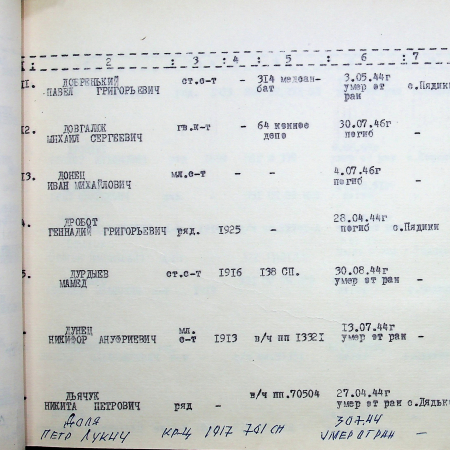 I : 2 : 3 : 4 : 5 : 6 : 7
II. ДОБРЕНЬКИЙ ст.с-т - 314 медсан- 3.05.44г с.Пядики
ПАВЕЛ ГРИГОРЬЕВИЧ бат умер от
ран
I2. ДОВГАЛЮК гв.к-т - 64 конное 30.07.46г
МИХАИЛ СЕРГЕЕВИЧ депо погиб -
I3. ДОНЕЦ мл.с-т - - 4.07.46г
ИВАН МИХАЙЛОВИЧ погиб -
4. ДРОБОТ 28.04.44г
ГЕННАДИЙ ГРИГОРЬЕВИЧ ряд. I925 - погиб с.Пядики
5. ДУРДЫЕВ ст.с-т I9I6 I38 СП. 30.08.44г
МАМЕД умер от ран -
ДУНЕЦ мл. I3.07.44г
НИКИФОР АНУФРИЕВИЧ с-т I9I3 в/ч пп I332I умер от ран -
ДЬЯЧУК в/ч пп.70504 27.04.44г
НИКИТА ПЕТРОВИЧ ряд - умер от ран с.Дядьк
ДОЛЯ 30.7.44
ПЕТР ЛУКИЧ КР-Ц 1917 701 СП УМЕР ОТ РАН -